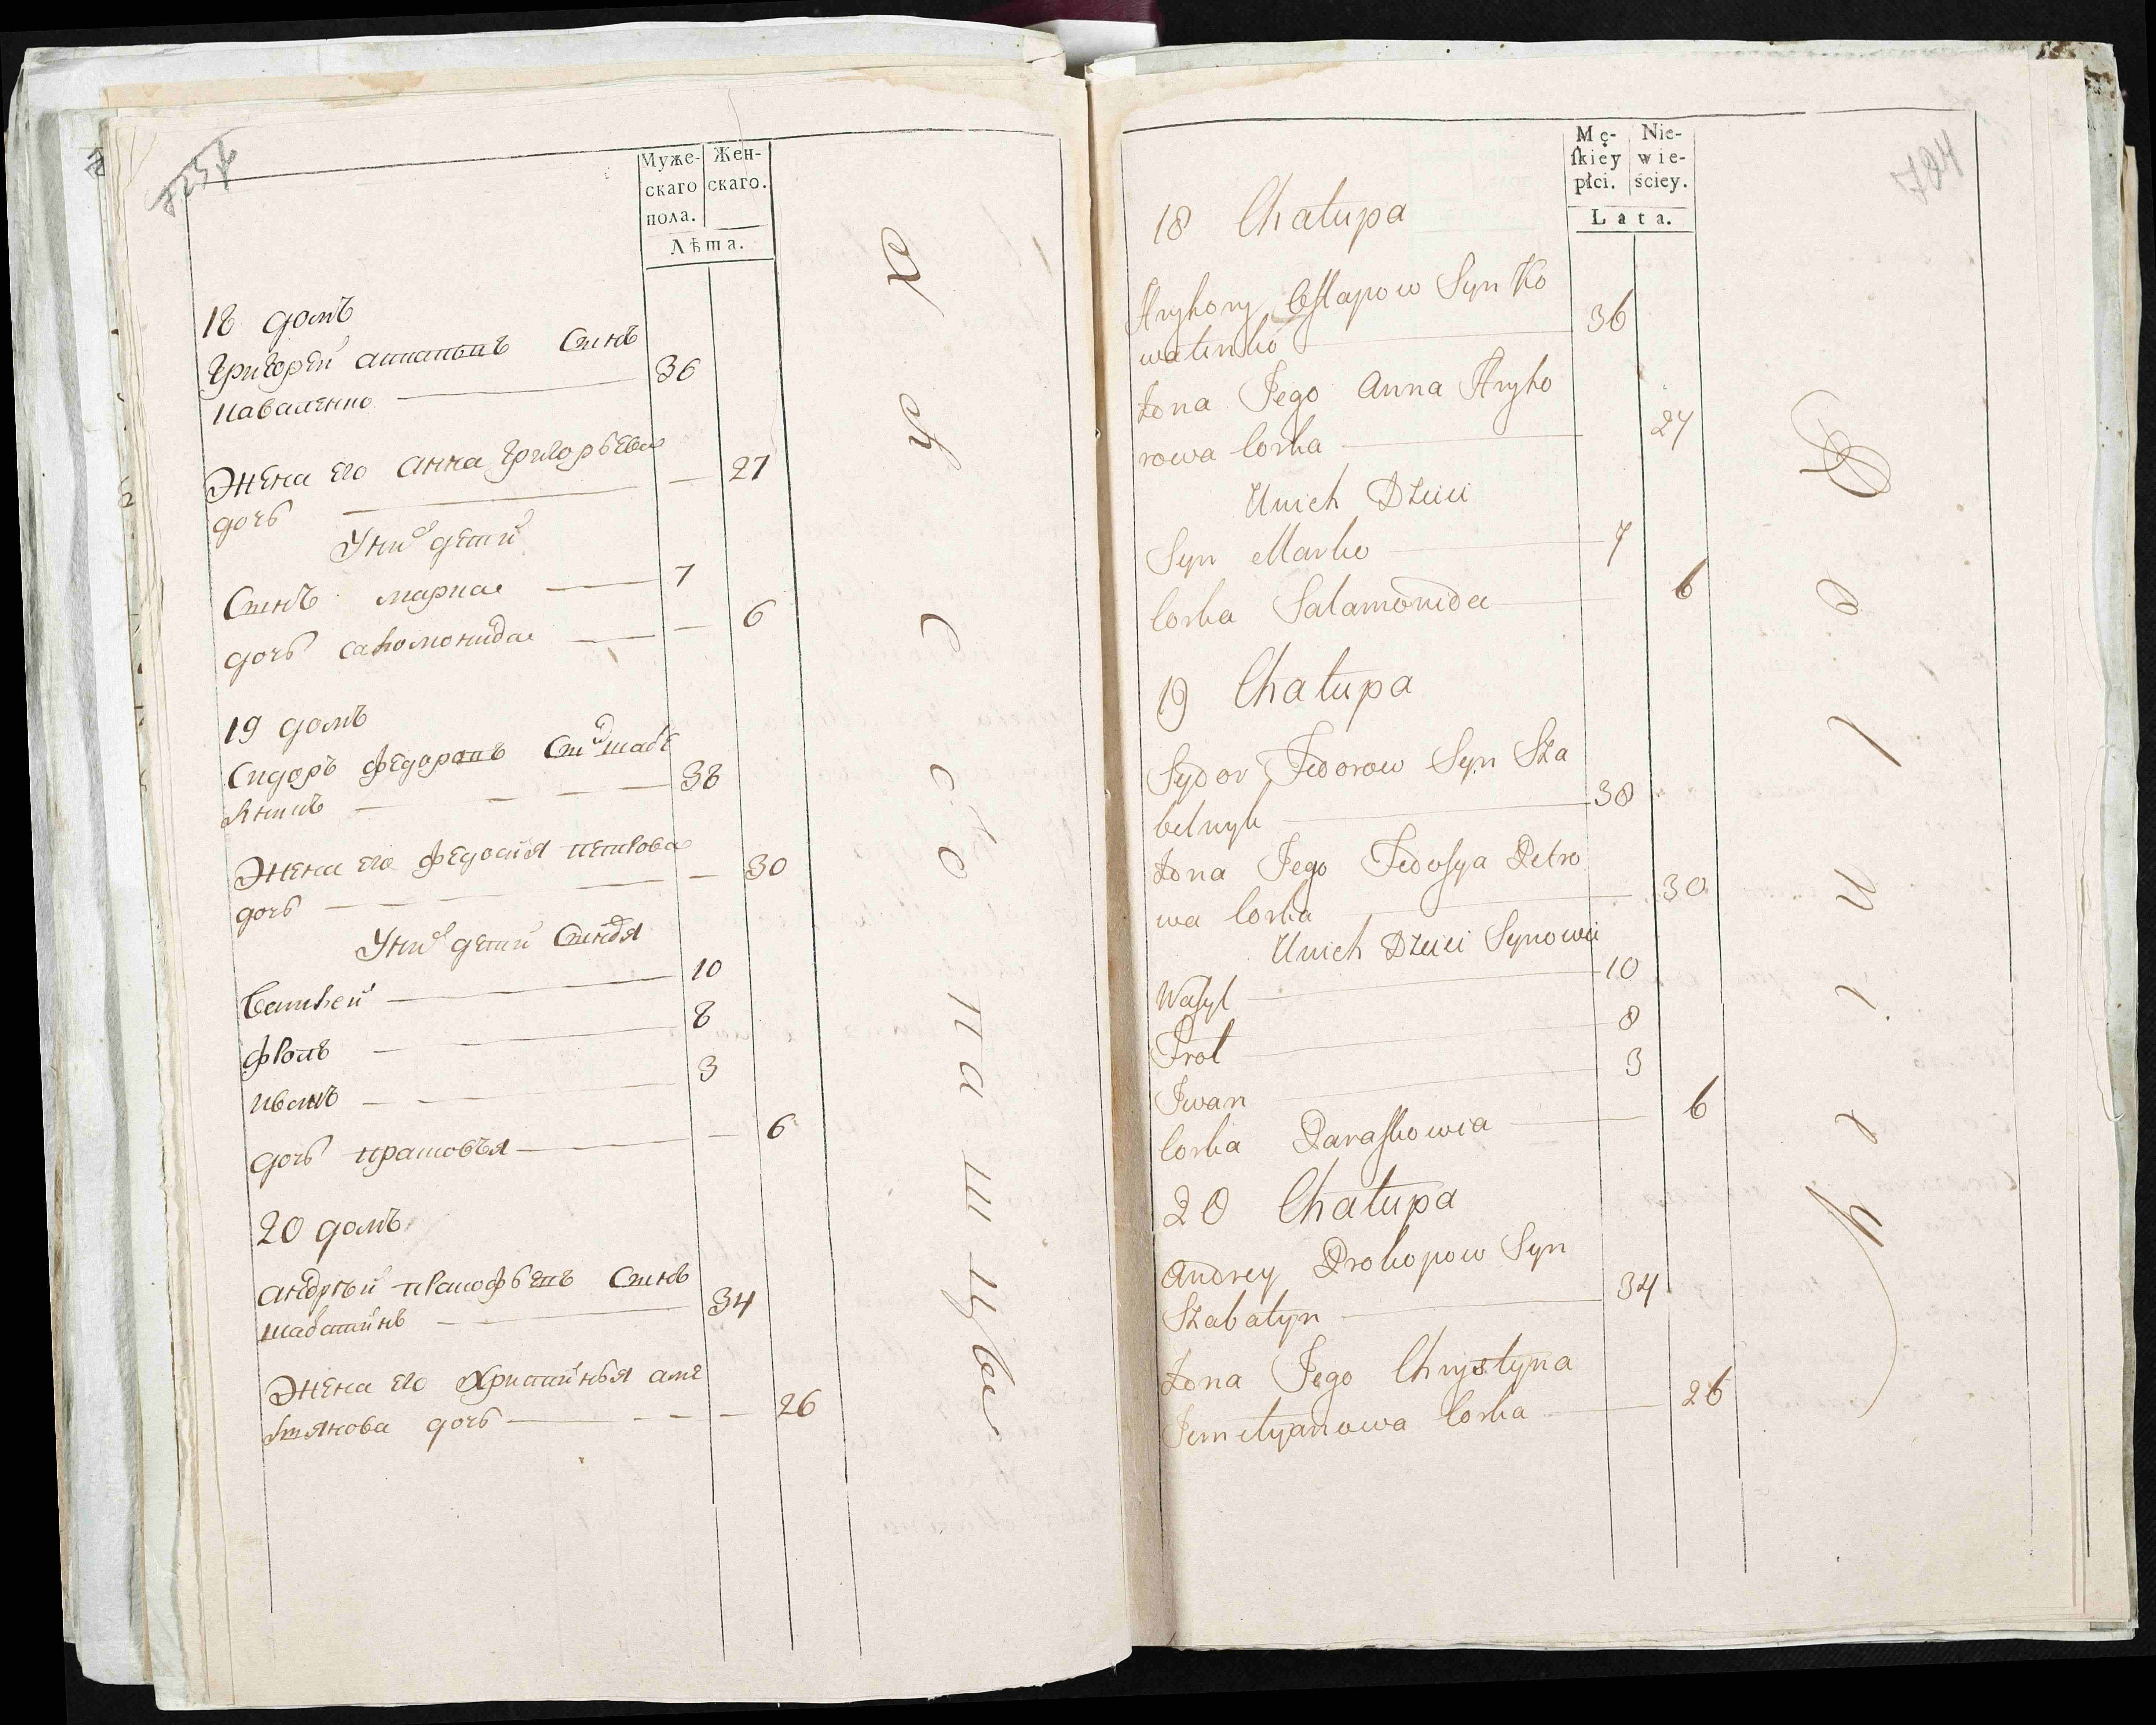 Муже-
скаго
пола.
Жен-
скаго.
Лѣта.
18 домъ
Григорей Сынъ
Коваленко 36
Жена его Анна Григорьева
дочь 27
У них дети
Сынъ Марка 7
дочь Саломонида 6
19 домъ
Сидоръ Федоровъ Сынъ Шабе
лникъ 38
Жена его Федосия Петрова
дочь 30
У них дети Сыновя
Василей 10
Фролъ 8
Иванъ 3
дочь Прасковъя 6
20 домъ
Андрей Прокофьевъ Сынъ
34
Жена его Христинья Еме
лянова дочь 26
Mę-
ſkiéy
płci.
Nie-
wie-
ściey.
Lata.
784
18 Chałupa
Hryhory Ostapow Syn Ko
walenko 36
Żona Jego Anna Hryho
rowa Corka 27
Unich Dzieci
Syn Marko 7
Corka Salamonida 6
19 Chałupa
Sydor Fedorow Syn Sza
belnyk 38
Żona Jego Fedosya Petro
wa Corka 30
Unich Dzieci Synowie
Wasyl 10
Frol 8
Iwan 3
Corka Paraskowia 6
20 Chałupa
Andrey Prokopow Syn
Szabatyn 34
Żona Jego Chrystyna
Jemelyanowa Corka 26